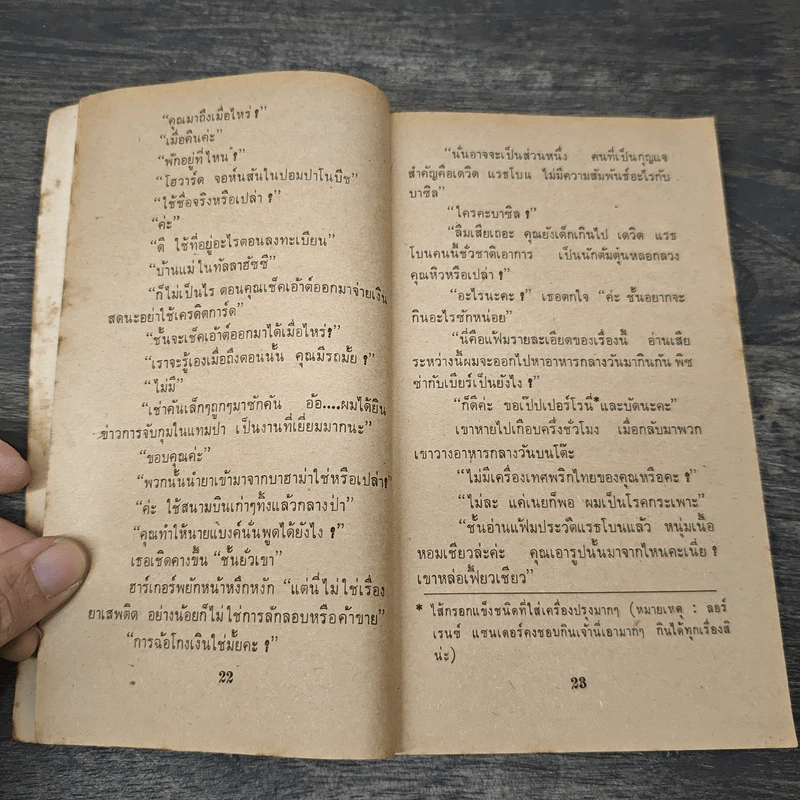 “คุณมาถึงเมื่อไหร่ ?”
“เมื่อคืนค่ะ”
“พักอยู่ที่ไหน ?”
“โฮวาร์ด จอห์นสันในปอมปาโนบีช”
“ใช้ชื่อจริงหรือเปล่า ?”
“ค่ะ”
“ดี ใช้ที่อยู่อะไรตอนลงทะเบียน”
“บ้านแม่ในทัลลาฮัซซี”
“ก็ไม่เป็นไร ตอนคุณเช็คเอ้าต์ออกมาจ่ายเงิน
สดนะอย่าใช้เครดิตการ์ด”
“ชั้นจะเช็คเอ้าต์ออกมาได้เมื่อไหร่?”
“เราจะรู้เองเมื่อถึงตอนนั้น คุณมีรถมั้ย ?”
“ไม่มี”
“เช่าคันเล็กๆถูกๆมาซักคัน อ้อ....ผมได้ยิน
ข่าวการจับกุมในแทมปา เป็นงานที่เยี่ยมมากนะ”
“ขอบคุณค่ะ”
“พวกนั้นนำยาเข้ามาจากบาฮาม่าใช่หรือเปล่า?
“ค่ะ ใช้สนามบินเก่าๆทิ้งแล้วกลางป่า”
“คุณทำให้นายแบงค์นั่นพูดได้ยังไง ?”
เธอเชิดคางขึ้น “ชั้นยั่วเขา”
ฮาร์เกอร์พยักหน้าหงึกหงัก “แต่นี่ไม่ใช่เรื่อง
ยาเสพติด อย่างน้อยก็ไม่ใช่การลักลอบหรือค้าขาย”
“การฉ้อโกงเงินใช่มั้ยคะ ?”
22
“นั่นอาจจะเป็นส่วนหนึ่ง คนที่เป็นกุญแจ
สำคัญคือเดวิด แรธโบน ไม่มีความสัมพันธ์อะไรกับ
บาซิล”
“ใครคะบาซิล ?”
“ลืมเสียเถอะ คุณยังเด็กเกินไป เดวิด แรธ
โบนคนนี้ชั่วชาติเอาการ เป็นนักต้มตุ๋นหลอกลวง
คุณหิวหรือเปล่า ?”
“อะไรนะคะ ?” เธอตกใจ “ค่ะ ชั้นอยากจะ
กินอะไรซักหน่อย”
“นี่คือแฟ้มรายละเอียดของเรื่องนี้ อ่านเสีย
ระหว่างนี้ผมจะออกไปหาอาหารกลางวันมากินกัน พิซ
ซ่ากับเบียร์เป็นยังไง ?”
“ก็ดีค่ะ ขอเป๊ปเปอร์โรนี่*และบัดนะคะ”
เขาหายไปเกือบครึ่งชั่วโมง เมื่อกลับมาพวก
เขาวางอาหารกลางวันบนโต๊ะ
“ไม่มีเครื่องเทศพริกไทยของคุณหรือคะ ?”
“ไม่ละ แค่เนยก็พอ ผมเป็นโรคกระเพาะ”
“ชั้นอ่านแฟ้มประวัติแรธโบนแล้ว หนุ่มเนื้อ
หอมเชียวล่ะค่ะ คุณเอารูปนั้นมาจากไหนคะเนี่ย ?
เขาหล่อเฟี้ยวเชียว”
* ไส้กรอกแข็งชนิดที่ใส่เครื่องปรุงมากๆ (หมายเหตุ : ลอร์
เรนซ์ แซนเดอร์คงชอบกินเจ้านี่เอามากๆ กินได้ทุกเรื่องสิ
น่ะ)
23